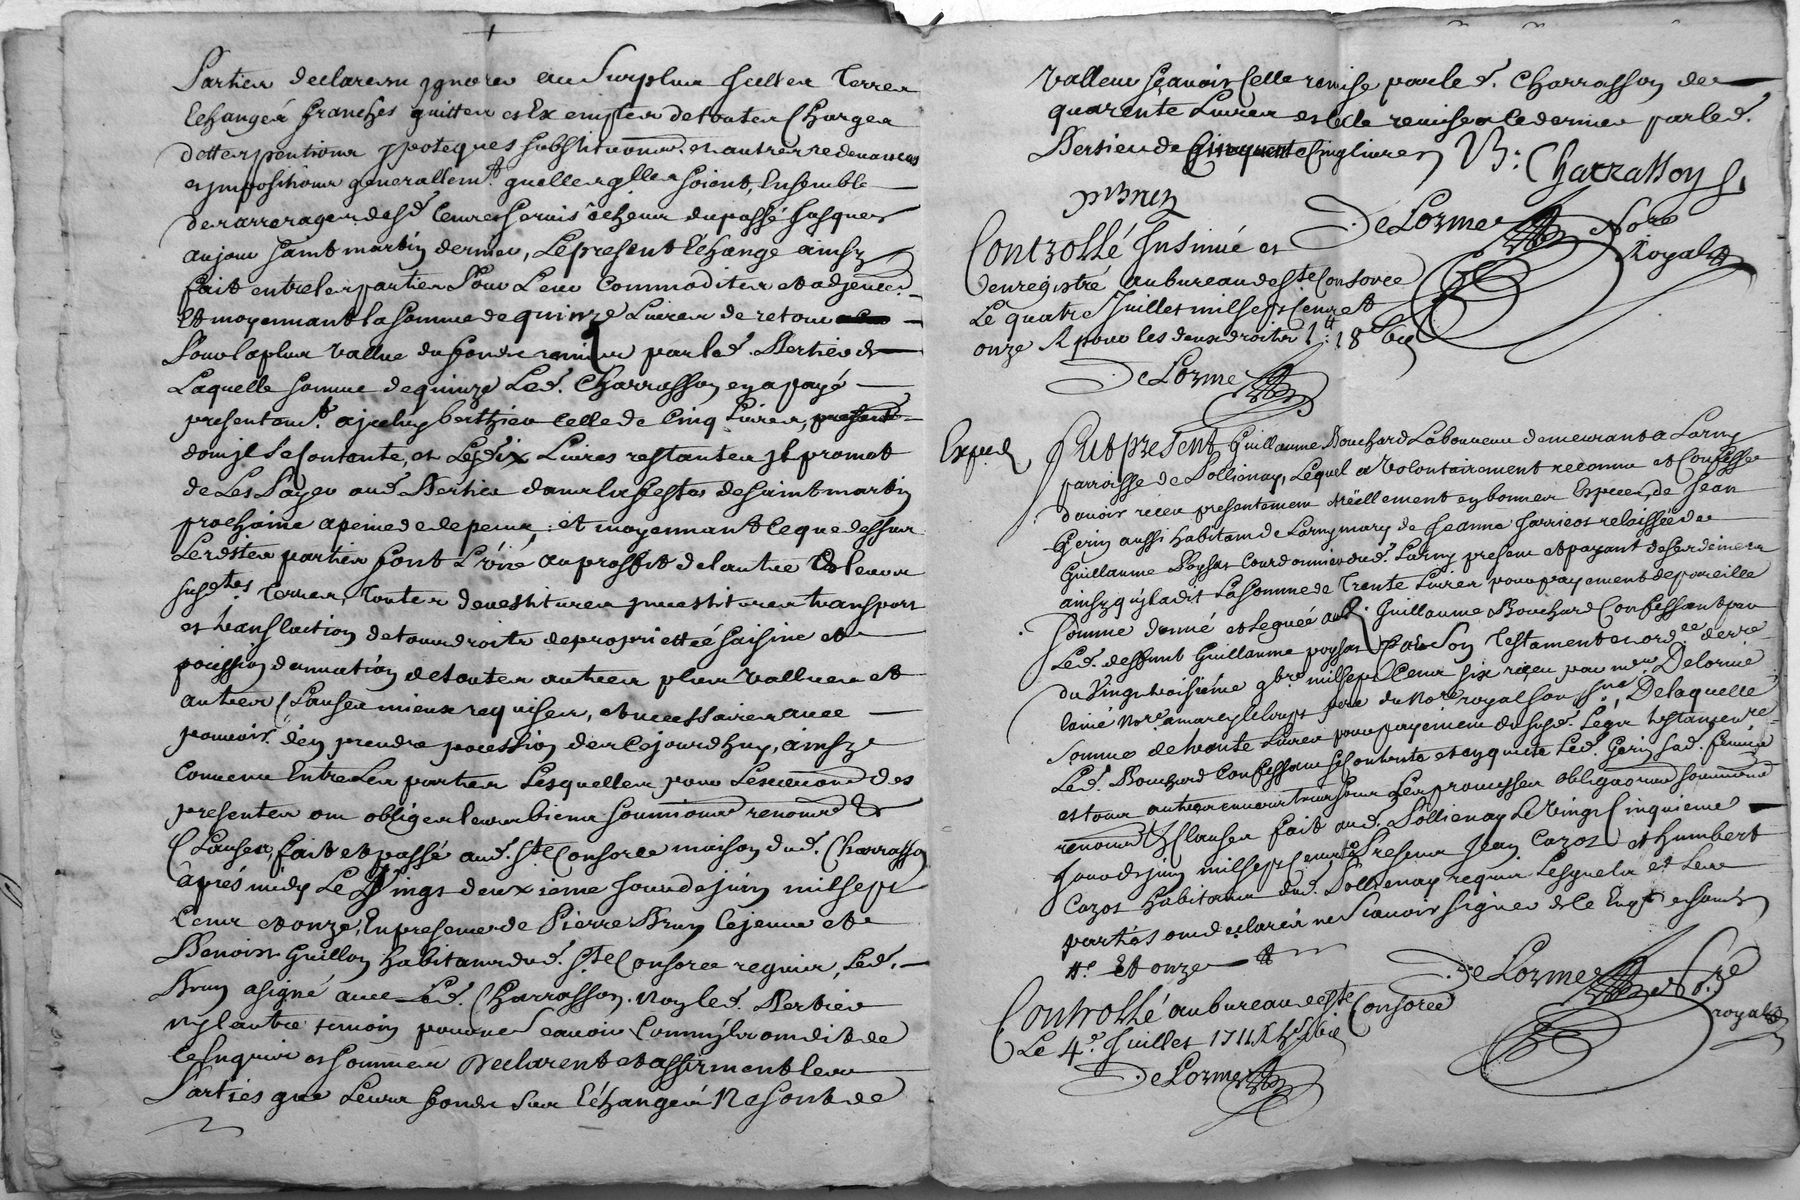 Parties declarem ignorer au surplus susd.es Terres
Echangéz franches quittes et Exemptes de toutes Charges
dettes pentions ypoteques substituons. et autres redevances
et impositions generallem.t quelles q'lles soient, Ensemble
des arrerages desd. cens et servis êcheus du passé jusques
au jour saint martin dernier, Le present Echange ainsy
fait entre les parties Pour Leur Commoditez et adjences
Et moyennant la somme de quinze Livres de retour
Pour la plus vallue du fonds remis par led. Bertier de
Laquelle somme de quinze Led. Charrasson en a payé
presentem.t a jceluy berthier celle de Cinq Livres,
dont jl se contente, et Les dix Livres restantes jl promet
de Les Payer aud. Bertier dans la feste de saint martin
prochaine a peine de depens, et moyennant ce que dessus
Lesdites parties font L'une au proffit de l'autre de leurs
susd.tes Terres, Toutes devestitures jnvestitures transport
et translation de tous droits de proprietté saisine et
poission donnation de toutes autres plus vallues et
autres Clauses mieux requises, et necessaires avec
pouvoir d'en prendre pocession des cejourdhuy, ainsy
Convenu Entre Les parties Lesquelles pour L'execuon des
presentes ont obligés leurs biens soumions renons &
Clauses, fait et passé aud. S.te Consorce maison dud. Charrasson
après midy Le Vingt deuxieme Jour de juin mil sept
Cens et onze, En presence de Pierre Brun Lejeune et
Benoist Guillon habitans dud. S.te Consorce requis, Led.
Brun a signé avec Led. Charrasson. Non led. Bertier
ny l'autre temoin pour ne Scavoir Comme jls ont dit de
ce Enquis et sommés Declarent et affirment les
Parties que Leurs fonds sus Echangéz Ne sont de
valleur Scavoir Celle remise par le d. Charrasson de
quarente Livres et Celle remise a ce dernier par led.
Bertier de Cinquente Cinq livres
Charrasson
P Brun
De Lorme No.re
Royal
Controllé Insinué et
enregistré au bureau de S.te Consorce
Le quatre Juillet mil sept Cens et
onze R pour les deux droits 1.# 18
De Lorme
Exped.
Fut present Guillaume Bouchard Laboureur demeurant a Larny
parroisse de Pollienay, Lequel a volontairement reconnu et Confessé
d'avoir receu presentement réellement en bonnes Especes, de Jean
Gerin aussi habitant de Larny mary de Jeanne Jarricot relaissée de
Guillaume Poyssat Courdonnier dud. Larny present et payant de ses deniers
ainsy qu'jl a dit La somme de Trente Livres pour payement de pareille
somme donné et Leguée aud. Guillaume Bouchard Confessant par
Led. deffunt Guillaume poyssat Par Son Testament et ord.ce derre
du Vingt troisième 9bre mil sept Cens six receu par me Delorme
lainé No.re a marcy le loup pere du No.re royal sous sné De laquelle
somme de trente Livres pour payement du susd. Légat testamentre
Led. Bouchard Confessant se contente et en quitte Led. Gerin sad. femme
et tous autres envers tous sous Les promesses obligaons soumions
renons & Clauses fait aud. Pollienay Le Vingt Cinquieme
Jour de juin mil sept Cens Presens Jean Cozot et humbert
Cozot habitans dud. Pollienay requis Lesquels et Les
parties ont declaréz ne Scavoir signer de ce Enq. et sommés
#. Et onze #
De Lorme No.re
royal
Controllé au bureau de S.te Consorce
Le 4.e Juillet 1711 R
De Lorme